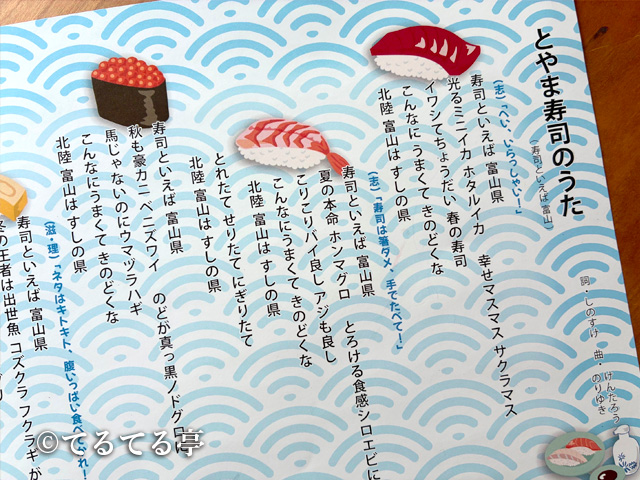 とやま寿司のうた
(寿司といえば富山)
詞・しのすけ 曲・げんたろう
のりゆき
(志)「へい、いらっしゃい!」
寿司といえば 富山県
光るミニイカ ホタルイカ 幸せマスマス サクラマス
イワシてちょうだい 春の寿司
こんなに うまくて きのどくな
北陸 富山は すしの県
(志)「寿司は箸ダメ、手でたべて!」
寿司といえば 富山県
夏の本命 ホンマグロ とろける食感シロエビに
こりこりバイ良し アジも良し
こんなにうまくて きのどくな
北陸 富山は すしの県
とれたて せりたて にぎりたて
北陸 富山は すしの県
寿司といえば 富山県
秋も豪カニ ベニズワイ のどが真っ黒ノドグロに
馬じゃないのにウマヅラハギ
こんなにうまくて きのどくな
北陸 富山は すしの県
(滋・理)「ネタはキトキト、腹いっぱい食べ
れ!
寿司といえば 富山県
の王者は出世魚 コズクラ フクラギが
©てるてる亭